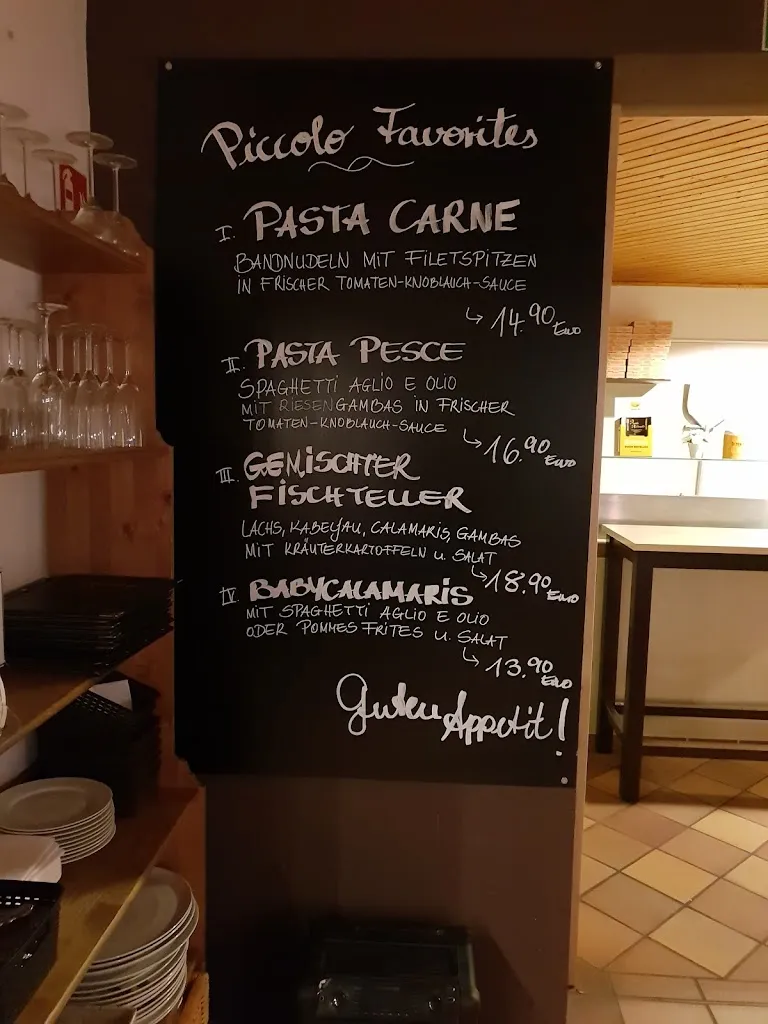 Piccolo Favorites
I. PASTA CARNE
BANDNUDELN MIT FILETSPITZEN
IN FRISCHER TOMATEN-KNOBLAUCH-SAUCE
↳ 14.90 Euro
II. PASTA PESCE
SPAGHETTI AGLIO E OLIO
MIT RIESENGAMBAS IN FRISCHER
TOMATEN-KNOBLAUCH-SAUCE
↳ 16.90 Euro
III. GEMISCHTER
FISCHTELLER
LACHS, KABELJAU, CALAMARIS, GAMBAS
MIT KRÄUTERKARTOFFELN u. SALAT
↳ 18.90 Euro
IV. BABYCALAMARIS
MIT SPAGHETTI AGLIO E OLIO
ODER POMMES FRITES u. SALAT
↳ 13.90 Euro
Guten Appetit!